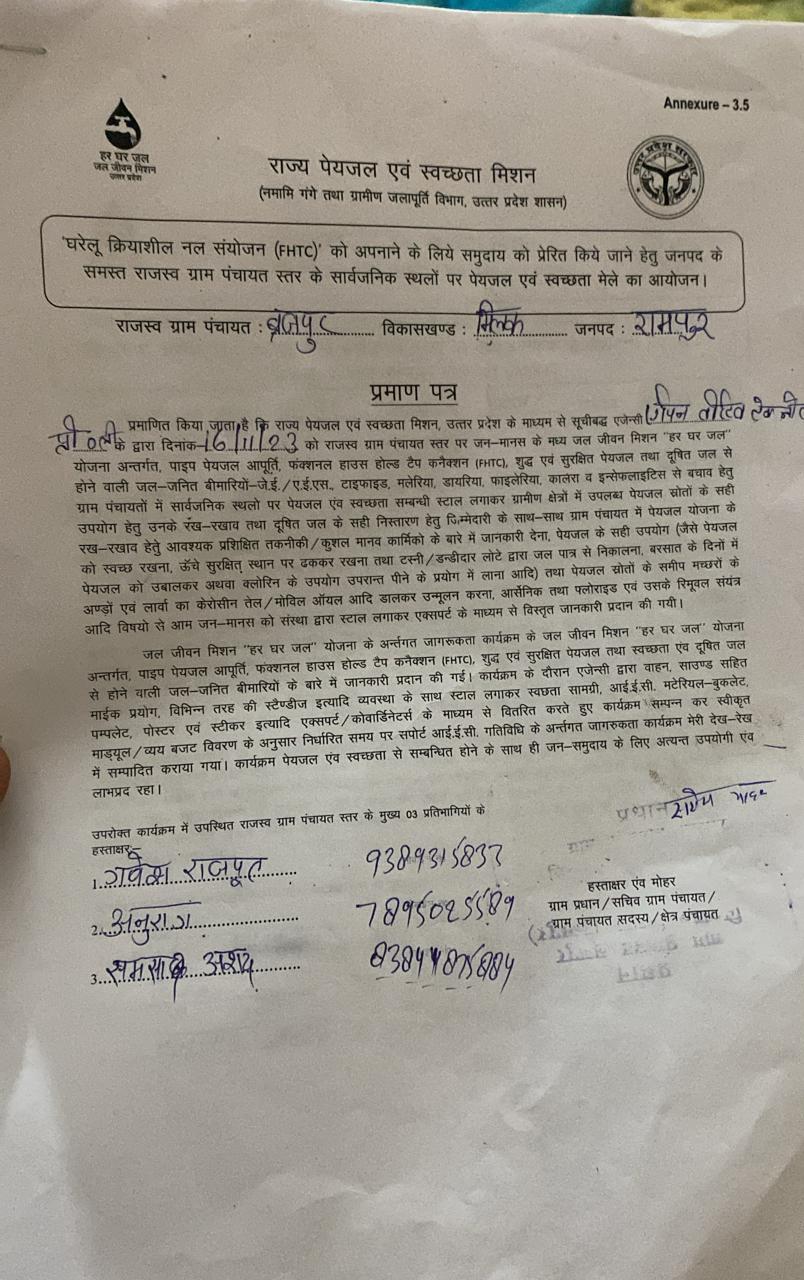 Annexure – 3.5
हर घर जल
जल जीवन मिशन
उत्तर प्रदेश
राज्य पेयजल एवं स्वच्छता मिशन
(नमामि गंगे तथा ग्रामीण जलापूर्ति विभाग, उत्तर प्रदेश शासन)
उत्तर प्रदेश सरकार
'घरेलू क्रियाशील नल संयोजन (FHTC)' को अपनाने के लिये समुदाय को प्रेरित किये जाने हेतु जनपद के
समस्त राजस्व ग्राम पंचायत स्तर के सार्वजनिक स्थलों पर पेयजल एवं स्वच्छता मेले का आयोजन।
राजस्व ग्राम पंचायत : ब्रजपुर विकासखण्ड : मिलक जनपद : रामपुर
प्रमाण पत्र
प्रमाणित किया जाता है कि राज्य पेयजल एवं स्वच्छता मिशन, उत्तर प्रदेश के माध्यम से सूचीबद्ध एजेन्सी
प्री०ली० के द्वारा दिनांक-16/11/23 को राजस्व ग्राम पंचायत स्तर पर जन-मानस के मध्य जल जीवन मिशन "हर घर जल"
योजना अन्तर्गत, पाइप पेयजल आपूर्ति, फंक्शनल हाउस होल्ड टैप कनैक्शन (FHTC), शुद्ध एवं सुरक्षित पेयजल तथा दूषित जल से
होने वाली जल-जनित बीमारियों-जे.ई./ए.ई.एस., टाइफाइड, मलेरिया, डायरिया, फाइलेरिया, कालेरा व इन्सेफलाइटिस से बचाव हेतु
ग्राम पंचायतों में सार्वजनिक स्थलो पर पेयजल एंव स्वच्छता सम्बन्धी स्टाल लगाकर ग्रामीण क्षेत्रों में उपलब्ध पेयजल स्रोतों के सही
उपयोग हेतु उनके रख-रखाव तथा दूषित जल के सही निस्तारण हेतु जिम्मेदारी के साथ-साथ ग्राम पंचायत में पेयजल योजना के
रख-रखाव हेतु आवश्यक प्रशिक्षित तकनीकी/कुशल मानव कार्मिको के बारे में जानकारी देना, पेयजल के सही उपयोग (जैसे पेयजल
को स्वच्छ रखना, ऊँचे सुरक्षित् स्थान पर ढककर रखना तथा टस्नी/डन्डीदार लोटे द्वारा जल पात्र से निकालना, बरसात के दिनों में
पेयजल को उबालकर अथवा क्लोरिन के उपयोग उपरान्त पीने के प्रयोग में लाना आदि) तथा पेयजल स्रोतों के समीप मच्छरों के
अण्डों एवं लार्वा का केरोसीन तेल/मोविल ऑयल आदि डालकर उन्मूलन करना, आर्सेनिक तथा फ्लोराइड एवं उसके रिमूवल संयंत्र
आदि विषयो से आम जन-मानस को संस्था द्वारा स्टाल लगाकर एक्सपर्ट के माध्यम से विस्तृत जानकारी प्रदान की गयी।
जल जीवन मिशन "हर घर जल" योजना के अर्न्तगत जागरूकता कार्यक्रम के जल जीवन मिशन "हर घर जल" योजना
अन्तर्गत, पाइप पेयजल आपूर्ति, फंक्शनल हाउस होल्ड टैप कनैक्शन (FHTC), शुद्ध एवं सुरक्षित पेयजल तथा स्वच्छता एंव दूषित जल
से होने वाली जल-जनित बीमारियों के बारे में जानकारी प्रदान की गई। कार्यक्रम के दौरान एजेन्सी द्वारा वाहन, साउण्ड सहित
माईक प्रयोग, विभिन्न तरह की स्टैण्डीज इत्यादि व्यवस्था के साथ स्टाल लगाकर स्वछता सामग्री, आई.ई.सी. मटेरियल-बुकलेट,
पम्पलेट, पोस्टर एवं स्टीकर इत्यादि एक्सपर्ट/कोवार्डिनेटर्स के माध्यम से वितरित करते हुए कार्यक्रम सम्पन्न कर स्वीकृत
माड्यूल/व्यय बजट विवरण के अनुसार निर्धारित समय पर सपोर्ट आई.ई.सी. गतिविधि के अर्न्तगत जागरुकता कार्यक्रम मेरी देख-रेख
में सम्पादित कराया गया। कार्यक्रम पेयजल एंव स्वच्छता से सम्बन्धित होने के साथ ही जन-समुदाय के लिए अत्यन्त उपयोगी एंव
लाभप्रद रहा।
प्रधान
उपरोक्त कार्यक्रम में उपस्थित राजस्व ग्राम पंचायत स्तर के मुख्य 03 प्रतिभागियों के
हस्ताक्षर:-
1. राजपूत
2. अनुराग 7895025589
3.
हस्ताक्षर एंव मोहर
ग्राम प्रधान/सचिव ग्राम पंचायत/
ग्राम पंचायत सदस्य/क्षेत्र पंचायत